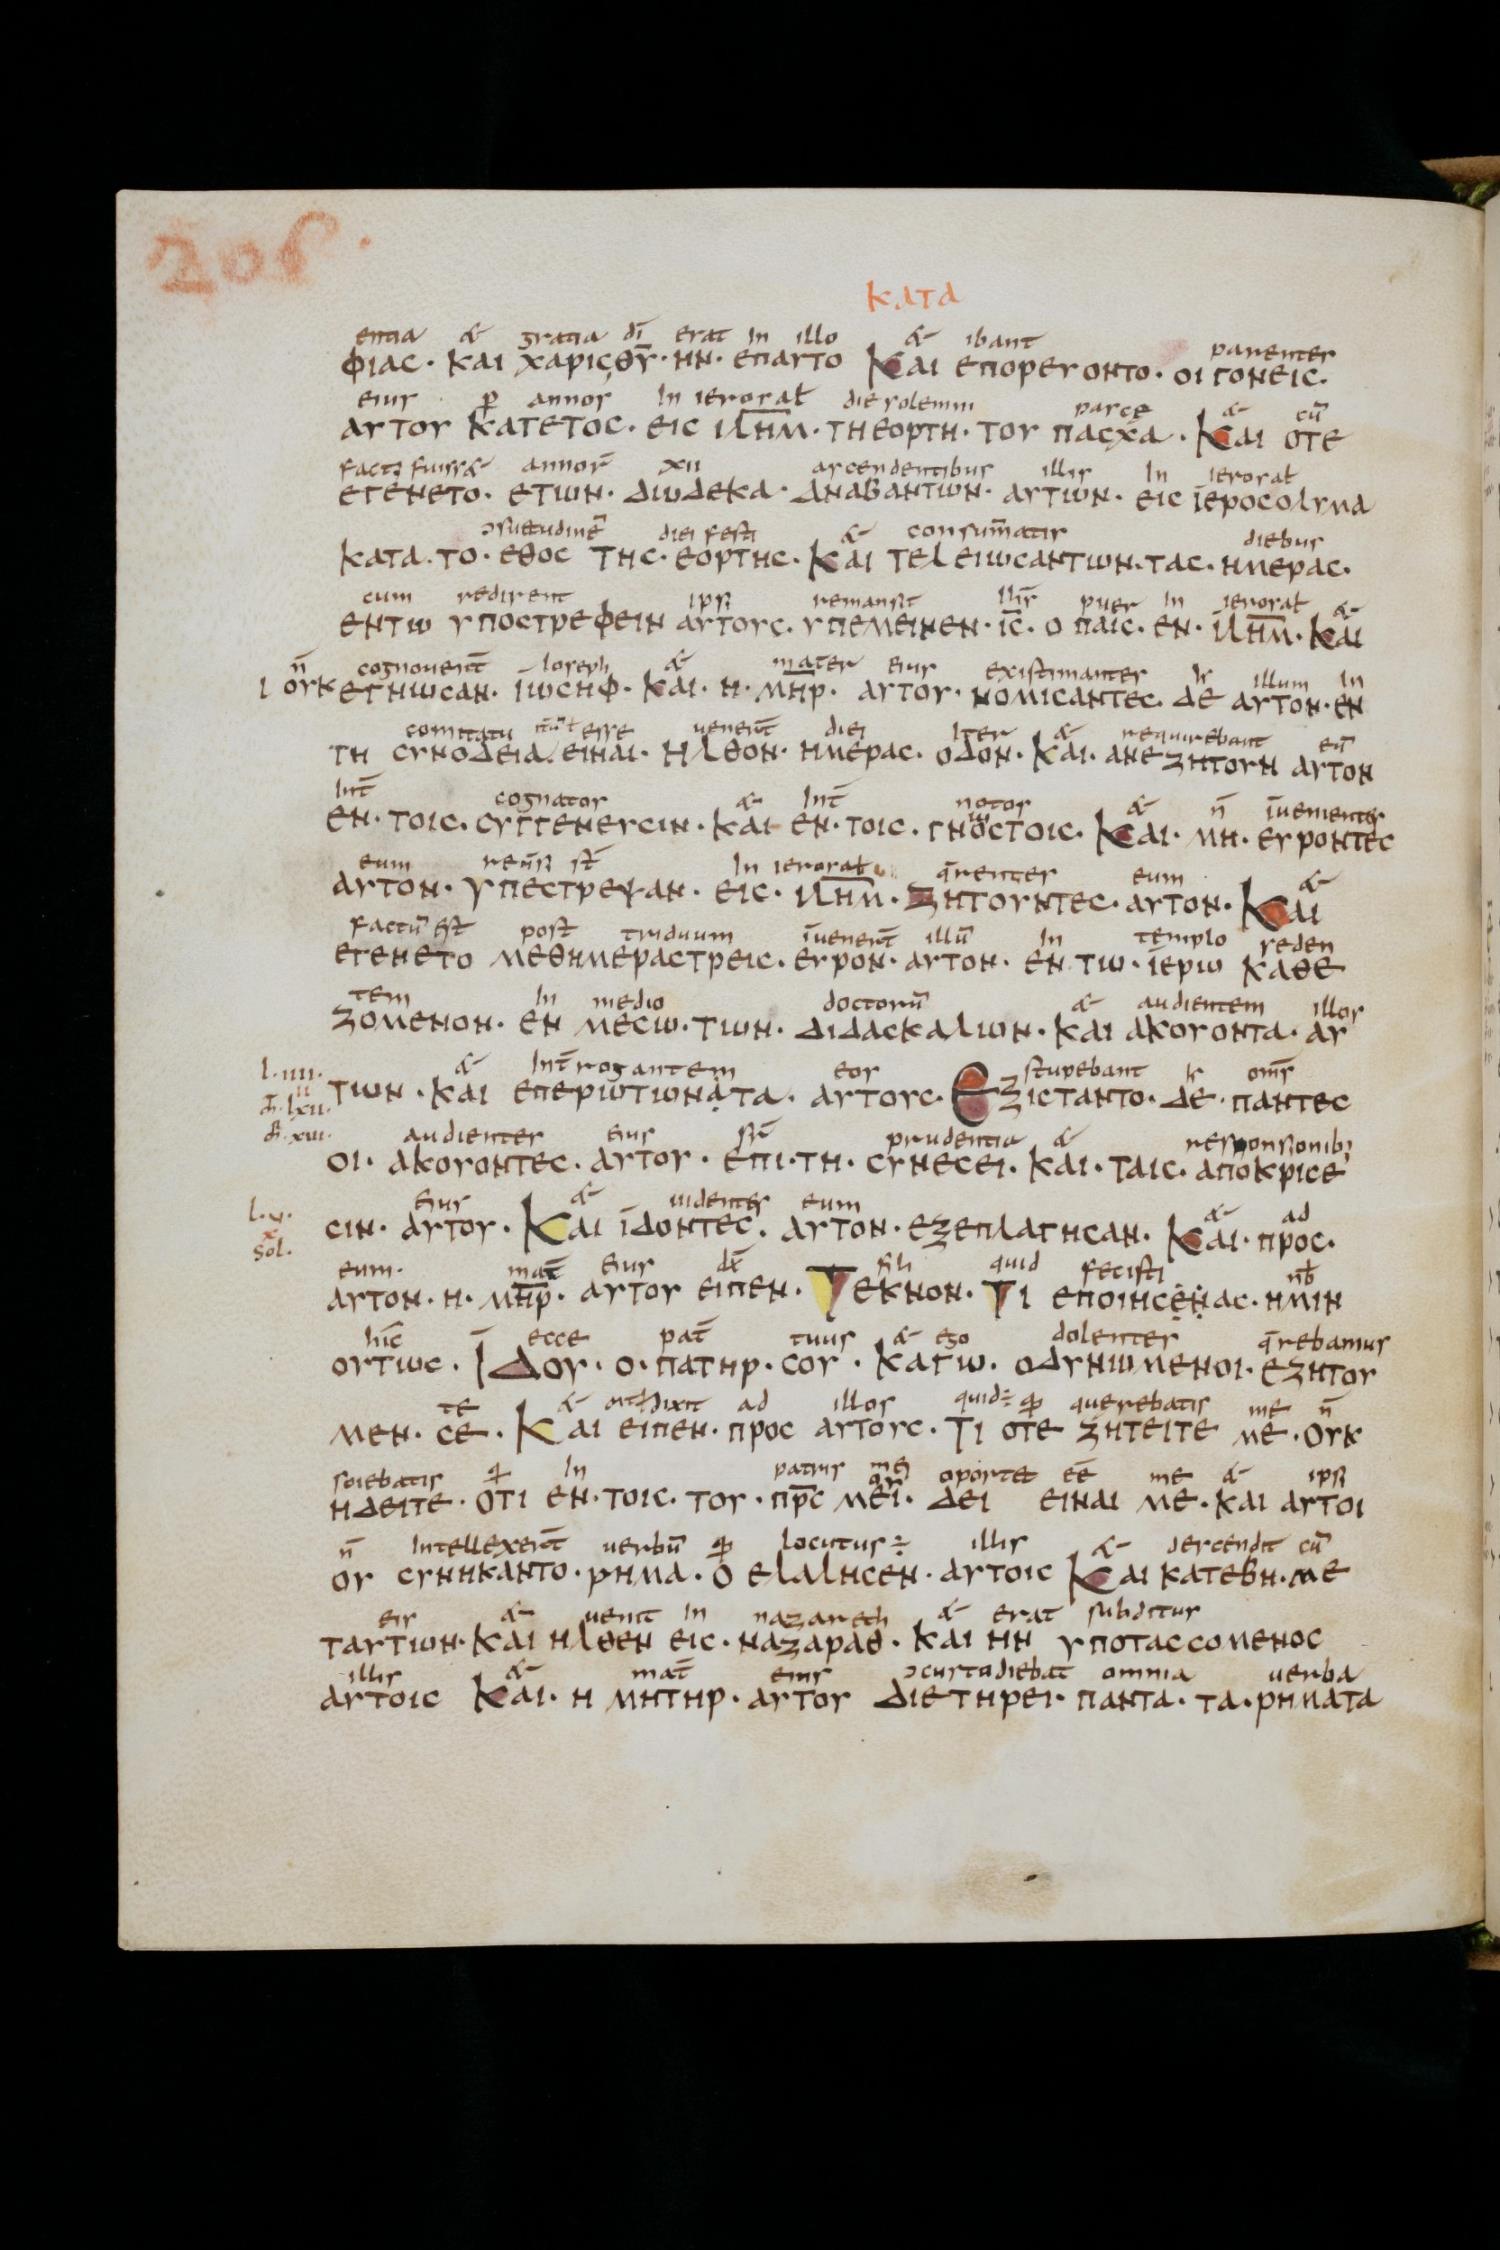 206.
ΚΑΤΑ
entia & gratia dī erat In illo & ibant parentes
ΦΙΑC· ΚΑΙ ΧΑΡΙCΘΥ̅· ΗΝ· ΕΠΑΥΤΟ ΚΑΙ ΕΠΟΡΕΥΟΝΤΟ· ΟΙ ΓΟΝΕΙC·
eius p̄ annos In ierosal̄ die solemni pascę & cū
ΑΥΤΟΥ ΚΑΤΕΤΟC· ΕΙC ΙΛΗΜ̅· ΤΗΕΟΡΤΗ· ΤΟΥ ΠΑCΧΑ· ΚΑΙ ΟΤΕ
fact; fuiss& annor̄ xii ascendentibus illis In ierosal̄
ΕΓΕΝΕΤΟ· ΕΤΙΩΝ· ΔΙΩΔΕΚΑ· ΑΝΑΒΑΝΤΙΩΝ· ΑΥΤΙΩΝ· ΕΙC ΪΕΡΟCΟΛΥΜΑ
ɔsuetudinē diei festi & consum̄atis diebus
ΚΑΤΑ· ΤΟ· ΕΘΟC ΤΗC· ΕΟΡΤΗC· ΚΑΙ ΤΕΛΕΙΩCΑΝΤΙΩΝ· ΤΑC· ΗΜΕΡΑC·
cum redirent ipsi remansit ih̄s puer In ierosal̄ &
ΕΝΤΙΩ ΥΠΟCΤΡΕΦΕΙΝ ΑΥΤΟΥC· ΥΠΕΜΕΙΝΕΝ· ΙC̅· Ο ΠΑΙC· ΕΝ· ΙΛΗΜ̅· ΚΑΙ
n̄ cognouerт̄ Ioseph & mater eius existimantes h̄ illum In
Ι ΟΥΚ ΕΓΝΩCΑΝ· ΪΩCΗΦ· ΚΑΙ· Η· ΜΗΡ̅· ΑΥΤΟΥ· ΝΟΜΙCΑΝΤΕC· ΔΕ ΑΥΤΟΝ· ΕΝ
comitatu esse uenerт̄ diei Iter & requirebant eū
ΤΗ CΥΝΟΔΕΙΑ· ΕΙΝΑΙ· ΗΛΘΟΝ· ΗΜΕΡΑC· ΟΔΟΝ· ΚΑΙ· ΑΝΕΖΗΤΟΥΝ ΑΥΤΟΝ
Int̄ cognatos & Int̄ notos & n̄ īuenientes
ΕΝ· ΤΟΙC· CΥΓΓΕΝΕΥCΙΝ· ΚΑΙ ΕΝ· ΤΟΙC· ΓΝΟCΤΟΙC· ΚΑΙ· ΜΗ· ΕΥΡΟΝΤΕC
eum reūsi st̄ In ierosal̄ q̄rentes eum &
ΑΥΤΟΝ· ΥΠΕCΤΡΕΨΑΝ· ΕΙC· ΙΛΗΜ̅· ΖΗΤΟΥΝΤΕC· ΑΥΤΟΝ· ΚΑΙ
factū est post triduum īuenerт̄ illū In templo seden
ΕΓΕΝΕΤΟ ΜΕΘΗΜΕΡΑCΤΡΕΙC· ΕΥΡΟΝ· ΑΥΤΟΝ· ΕΝ ΤΙΩ· ΪΕΡΙΩ ΚΑΘΕ
tem In medio doctorū & audientem illos
ΖΟΜΕΝΟΝ· ΕΝ ΜΕCΙΩ· ΤΙΩΝ· ΔΙΔΑCΚΑΛΙΩΝ· ΚΑΙ ΑΚΟΥΟΝΤΑ· ΑΥ
l. iiii. & Int̄rogantem eos stupebant h̄ om̄s
ΤΙΩΝ· ΚΑΙ ΕΠΕΡΙΩΤΙΩΝΑΤΑ· ΑΥΤΟΥC· ΕΖΙCΤΑΝΤΟ· ΔΕ· ΠΑΝΤΕC
audientes eius sup̄ prudentia & responsionib;
ΟΙ· ΑΚΟΥΟΝΤΕC· ΑΥΤΟΥ· ΕΠΙ· ΤΗ· CΥΝΕCΕΙ· ΚΑΙ· ΤΑΙC· ΑΠΟΚΡΙCΕ
l. v. eius & uidentes eum & ad
x
sol.
CΙΝ· ΑΥΤΟΥ· ΚΑΙ ΪΔΟΝΤΕC· ΑΥΤΟΝ· ΕΖΕΠΛΑΓΗCΑΝ· ΚΑΙ· ΠΡΟC·
eum· mat̄ eius dx̄ fili quid fecisti nb̄
ΑΥΤΟΝ· Η· ΜΗΡ̅· ΑΥΤΟΥ ΕΙΠΕΝ· ΤΕΚΝΟΝ· ΤΙ ΕΠΟΙΗCΕΝΑC· ΗΜΙΝ
hic̄ ecce pat̄ tuus & ego dolentes q̄rebamus
ΟΥΤΙΩC· ΙΔΟΥ· Ο· ΠΑΤΗΡ· CΟΥ· ΚΑΓΩ· ΟΔΥΝΙΩΜΕΝΟΙ· ΕΖΗΤΟΥ
te & dixit ad illos quid ÷ qđ querebatis me n̄
ΜΕΝ· CΕ· ΚΑΙ ΕΙΠΕΝ· ΠΡΟC ΑΥΤΟΥC· ΤΙ ΟΤΕ ΖΗΤΕΙΤΕ ΜΕ· ΟΥΚ
sciebatis In patris mei oportet eē me & ipsi
ΗΔΕΙΤΕ· ΟΤΙ ΕΝ· ΤΟΙC· ΤΟΥ· ΠΡC̅ ΜΕΙ· ΔΕΙ ΕΙΝΑΙ ΜΕ· ΚΑΙ ΑΥΤΟΙ
n̄ Intellexerт̄ uerbū qđ locutus ÷ illis & descendit cū
ΟΥ CΥΝΗΚΑΝΤΟ· ΡΗΜΑ· Ο ΕΛΑΛΗCΕΝ· ΑΥΤΟΙC ΚΑΙ ΚΑΤΕΒΗ· ΜΕ
eis & uenit In nazareth & erat subditus
ΤΑΥΤΙΩΝ· ΚΑΙ ΗΛΘΕΝ ΕΙC· ΝΑΖΑΡΑΘ· ΚΑΙ ΗΝ ΥΠΟΤΑCCΟΜΕΝΟC
illis & mat̄ eius ɔcustodiebat omnia uerba
ΑΥΤΟΙC ΚΑΙ· Η ΜΗΤΗΡ· ΑΥΤΟΥ ΔΙΕΤΗΡΕΙ· ΠΑΝΤΑ· ΤΑ· ΡΗΜΑΤΑ